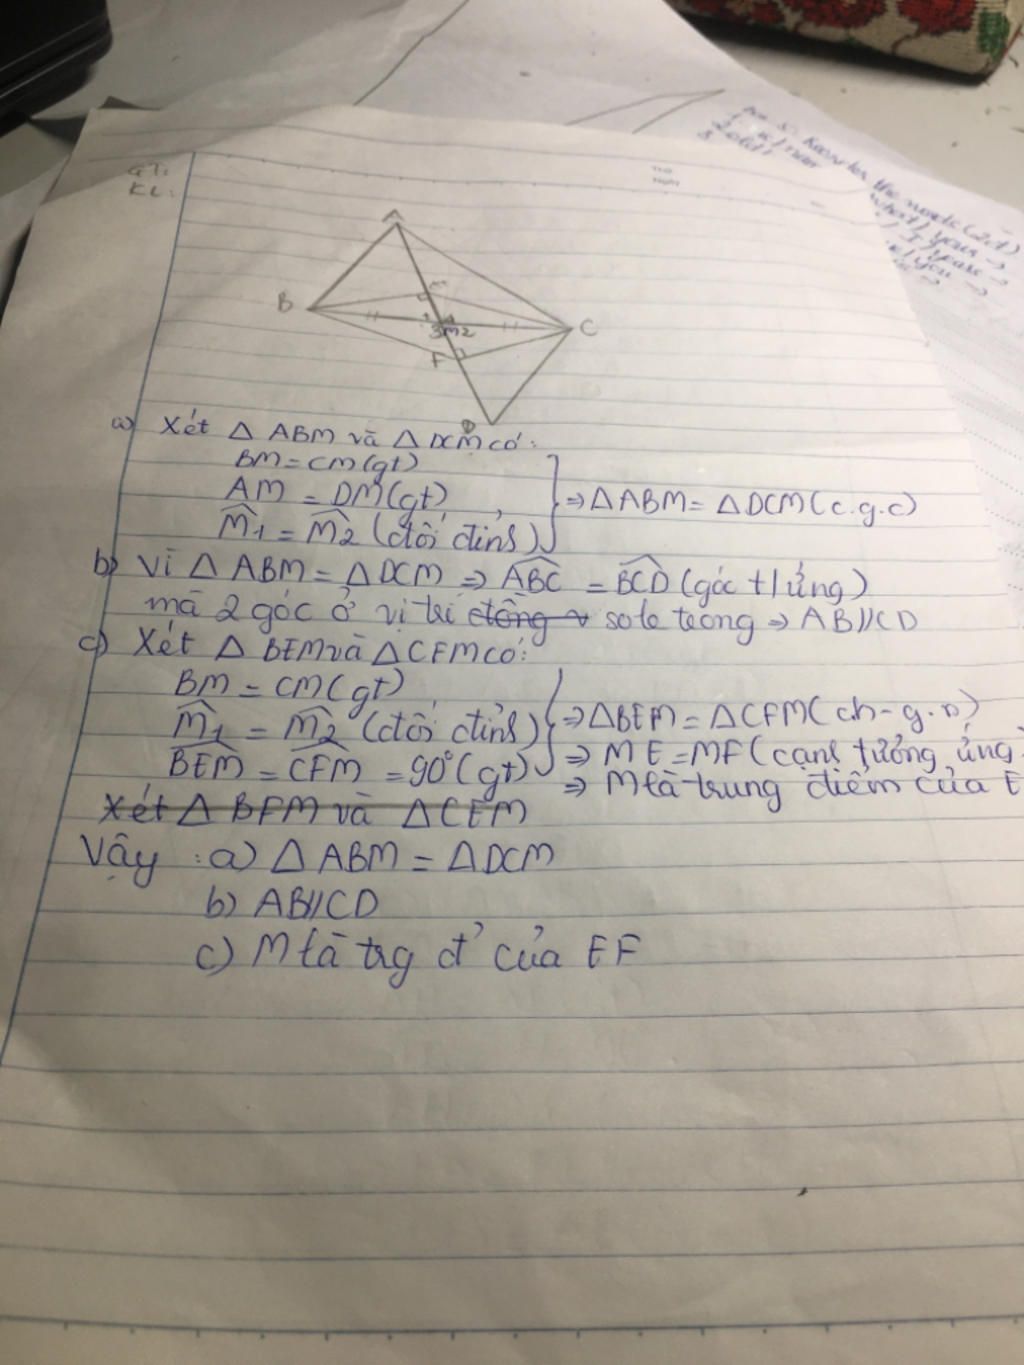 GT:
KL:
A
B
E
1
3 M 2
C
F
D
a) Xét △ ABM và △ DCM có:
BM = CM (gt)
AM = DM (gt)
M̂1 = M̂2 (đối đỉnh)
⇒ △ ABM = △ DCM (c.g.c)
b) Vì △ ABM = △ DCM ⇒ ABC = BCD (góc t/ứng)
mà 2 góc ở vị trí đồng v so le trong ⇒ AB//CD
c) Xét △ BEM và △ CFM có:
BM = CM (gt)
M̂1 = M̂2 (đối đỉnh)
BEM = CFM = 90° (gt)
⇒ △BEM = △CFM (ch-g.n)
⇒ ME = MF (cạnh tưởng ứng
⇒ M là trung điểm của E
Xét △ BFM và △ CEM
Vậy : a) △ ABM = △ DCM
b) AB//CD
c) M là trg đ' của EF
the words (2đ)